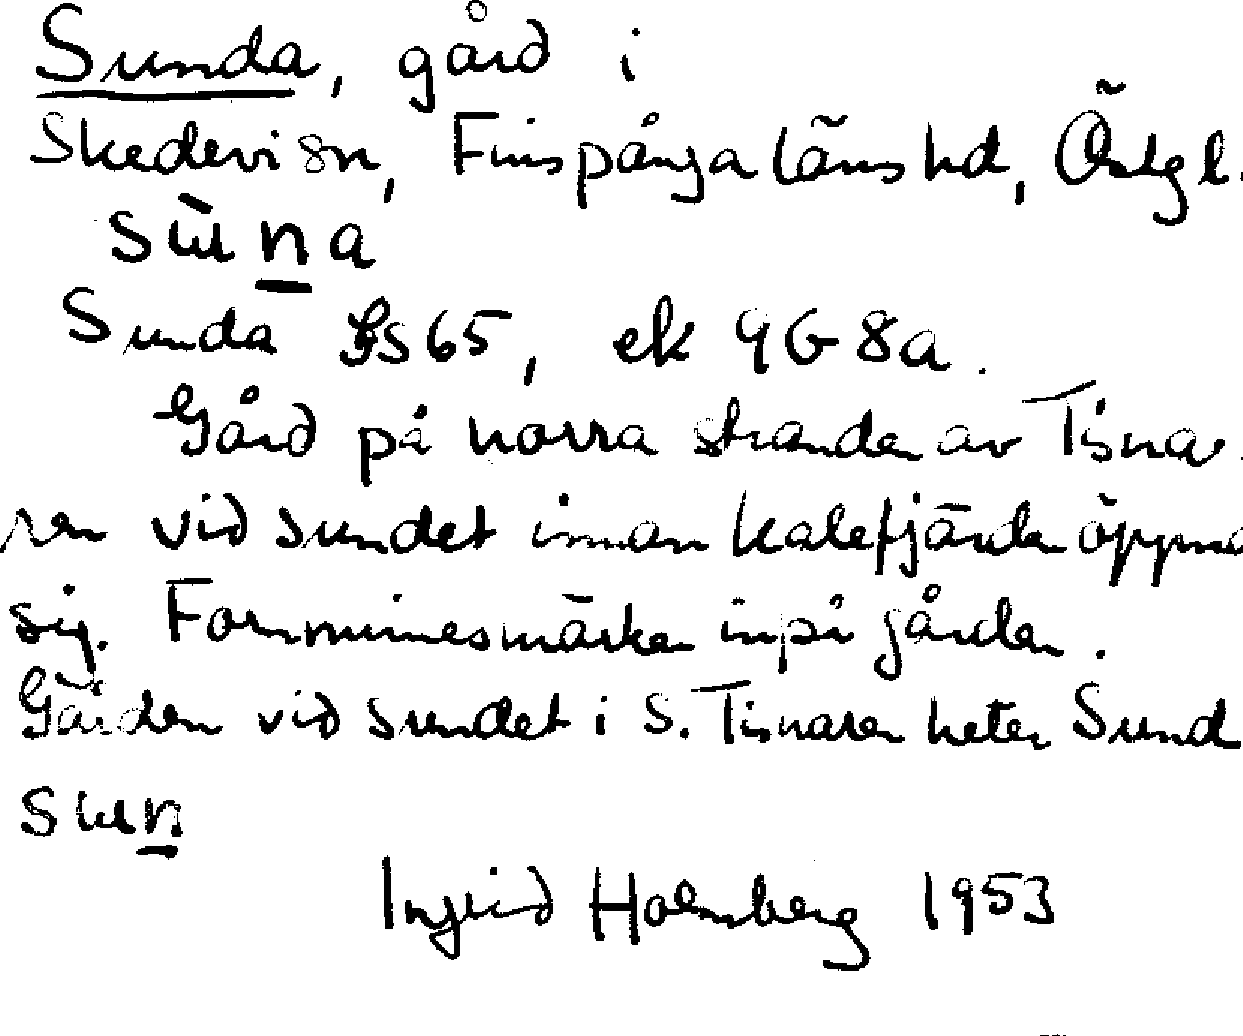 Sunda, gård i
Skedevi sn, Finspånga läns hd, Östgl.
sùna
Sunda GS65, ek 9G8a.
Gård på norra stranden av Tisna-
ren vid sundet innan Kalefjärden öppna
sig. Fornminnesmärken inpå gården.
Gården vid sundet i S. Tisnaren heter Sund
sun
Ingrid Holmberg 1953